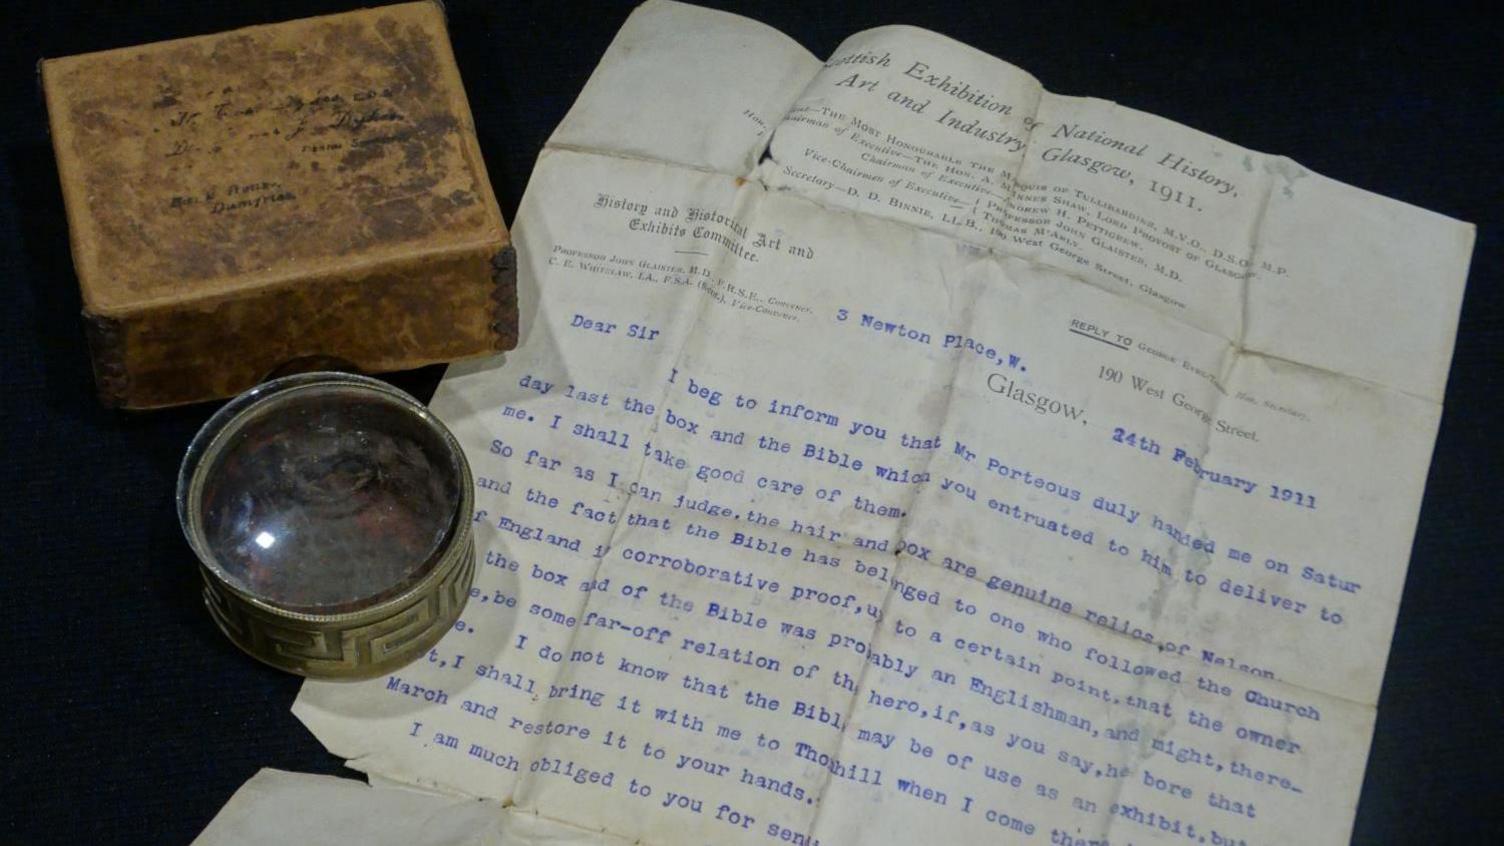 Dumfries.
Scottish Exhibition of National History,
Art and Industry, Glasgow, 1911.
—The Most Honourable the Marquis of Tullibardine, M.V.O., D.S.O., M.P.
Chairman of Executive—The Hon. A. M'Innes Shaw, Lord Provost of Glasgow.
Vice-Chairmen of Executive— Professor John Glaister, M.D.
Secretary—D. D. Binnie, LL.B., 190 West George Street, Glasgow
History and Historical Art and
Exhibits Committee.
Professor John Glaister, M.D., F.R.S.E., Convener.
C. E. Whitelaw, I.A., F.S.A. (Scot.), Vice-Convener.
REPLY TO George
190 West George Street.
3 Newton Place, W.
Glasgow, 24th February 1911
Dear Sir
I beg to inform you that Mr Porteous duly handed me on Satur
day last the box and the Bible which you entrusted to him to deliver to
me. I shall take good care of them.
So far as I can judge, the hair and box are genuine relics, of Nelson.
and the fact that the Bible has belonged to one who followed the Church
f England i corroborative proof, u to a certain point, that the owner
the box and of the Bible was probably an Englishman, and might, there-
e, be some far-off relation of th hero, if, as you say, he bore that
e.
I do not know that the Bibl may be of use as an exhibit, but
t, I shall bring it with me to Thornhill when I come
March and restore it to your hands.
I am much obliged to you for